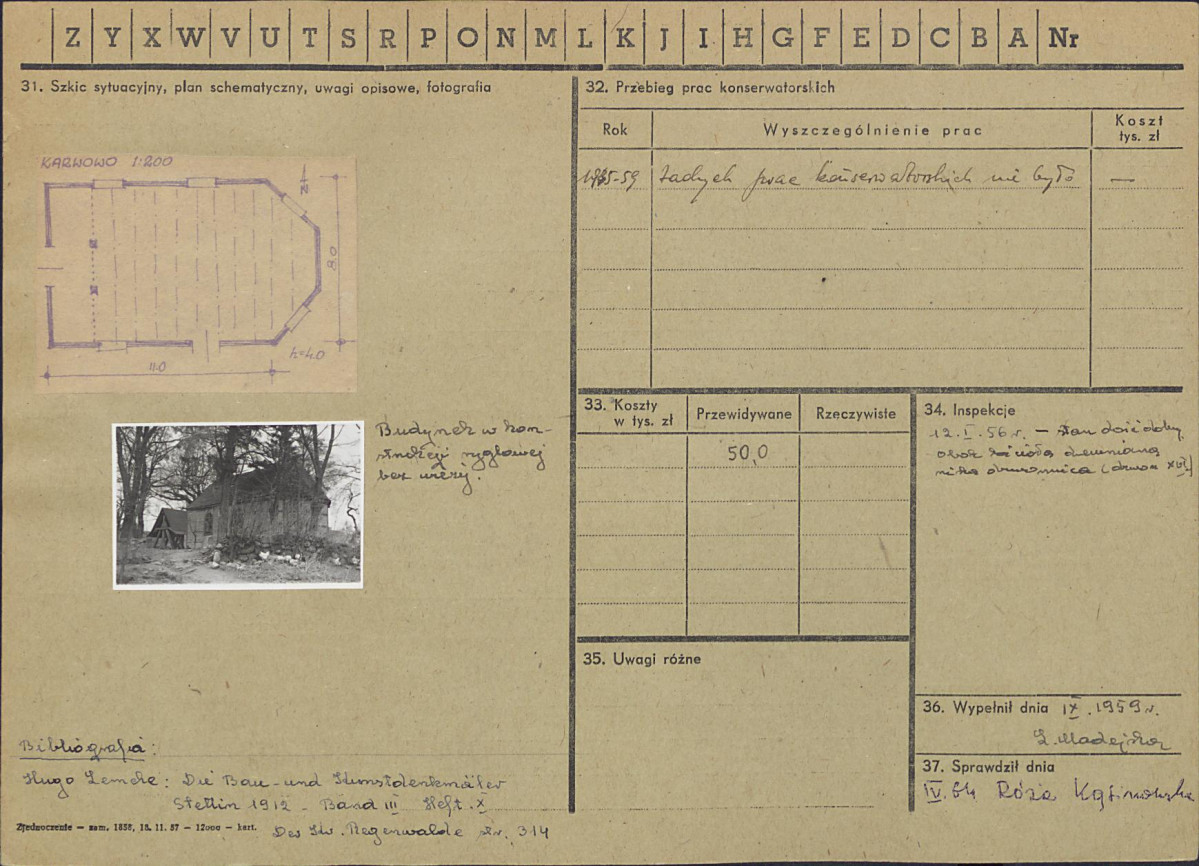 Z Y X W V U T S R P O N M L K J I H G F E D C B A Nr
31. Szkic sytuacyjny, plan schematyczny, uwagi opisowe, fotografia
KARWOWO 1:200
N
8.0
h=4.0
11.0
Budynek w kon-
strukcji ryglowej
bez wieży.
Bibliografia:
Hugo Lemcke: Die Bau- und Kunstdenkmäler
Stettin 1912 - Band III Heft. X
Der Kr. Regenwalde str. 314
Zjednoczenie — zam. 1858, 18. 11. 57 — 12000 — kart.
32. Przebieg prac konserwatorskich
Rok
Wyszczególnienie prac
Koszt
tys. zł
żadnych prac konserwatorskich nie było —
33. Koszty
w tys. zł
Przewidywane
Rzeczywiste
50,0
34. Inspekcje
12. I. 56 r. — stan dość dobry
obok kościoła drewniana
niska dzwonnica
35. Uwagi różne
36. Wypełnił dnia IX. 1959 r.
L. Madejska
37. Sprawdził dnia
IV. 64 Róża Kąsinowska